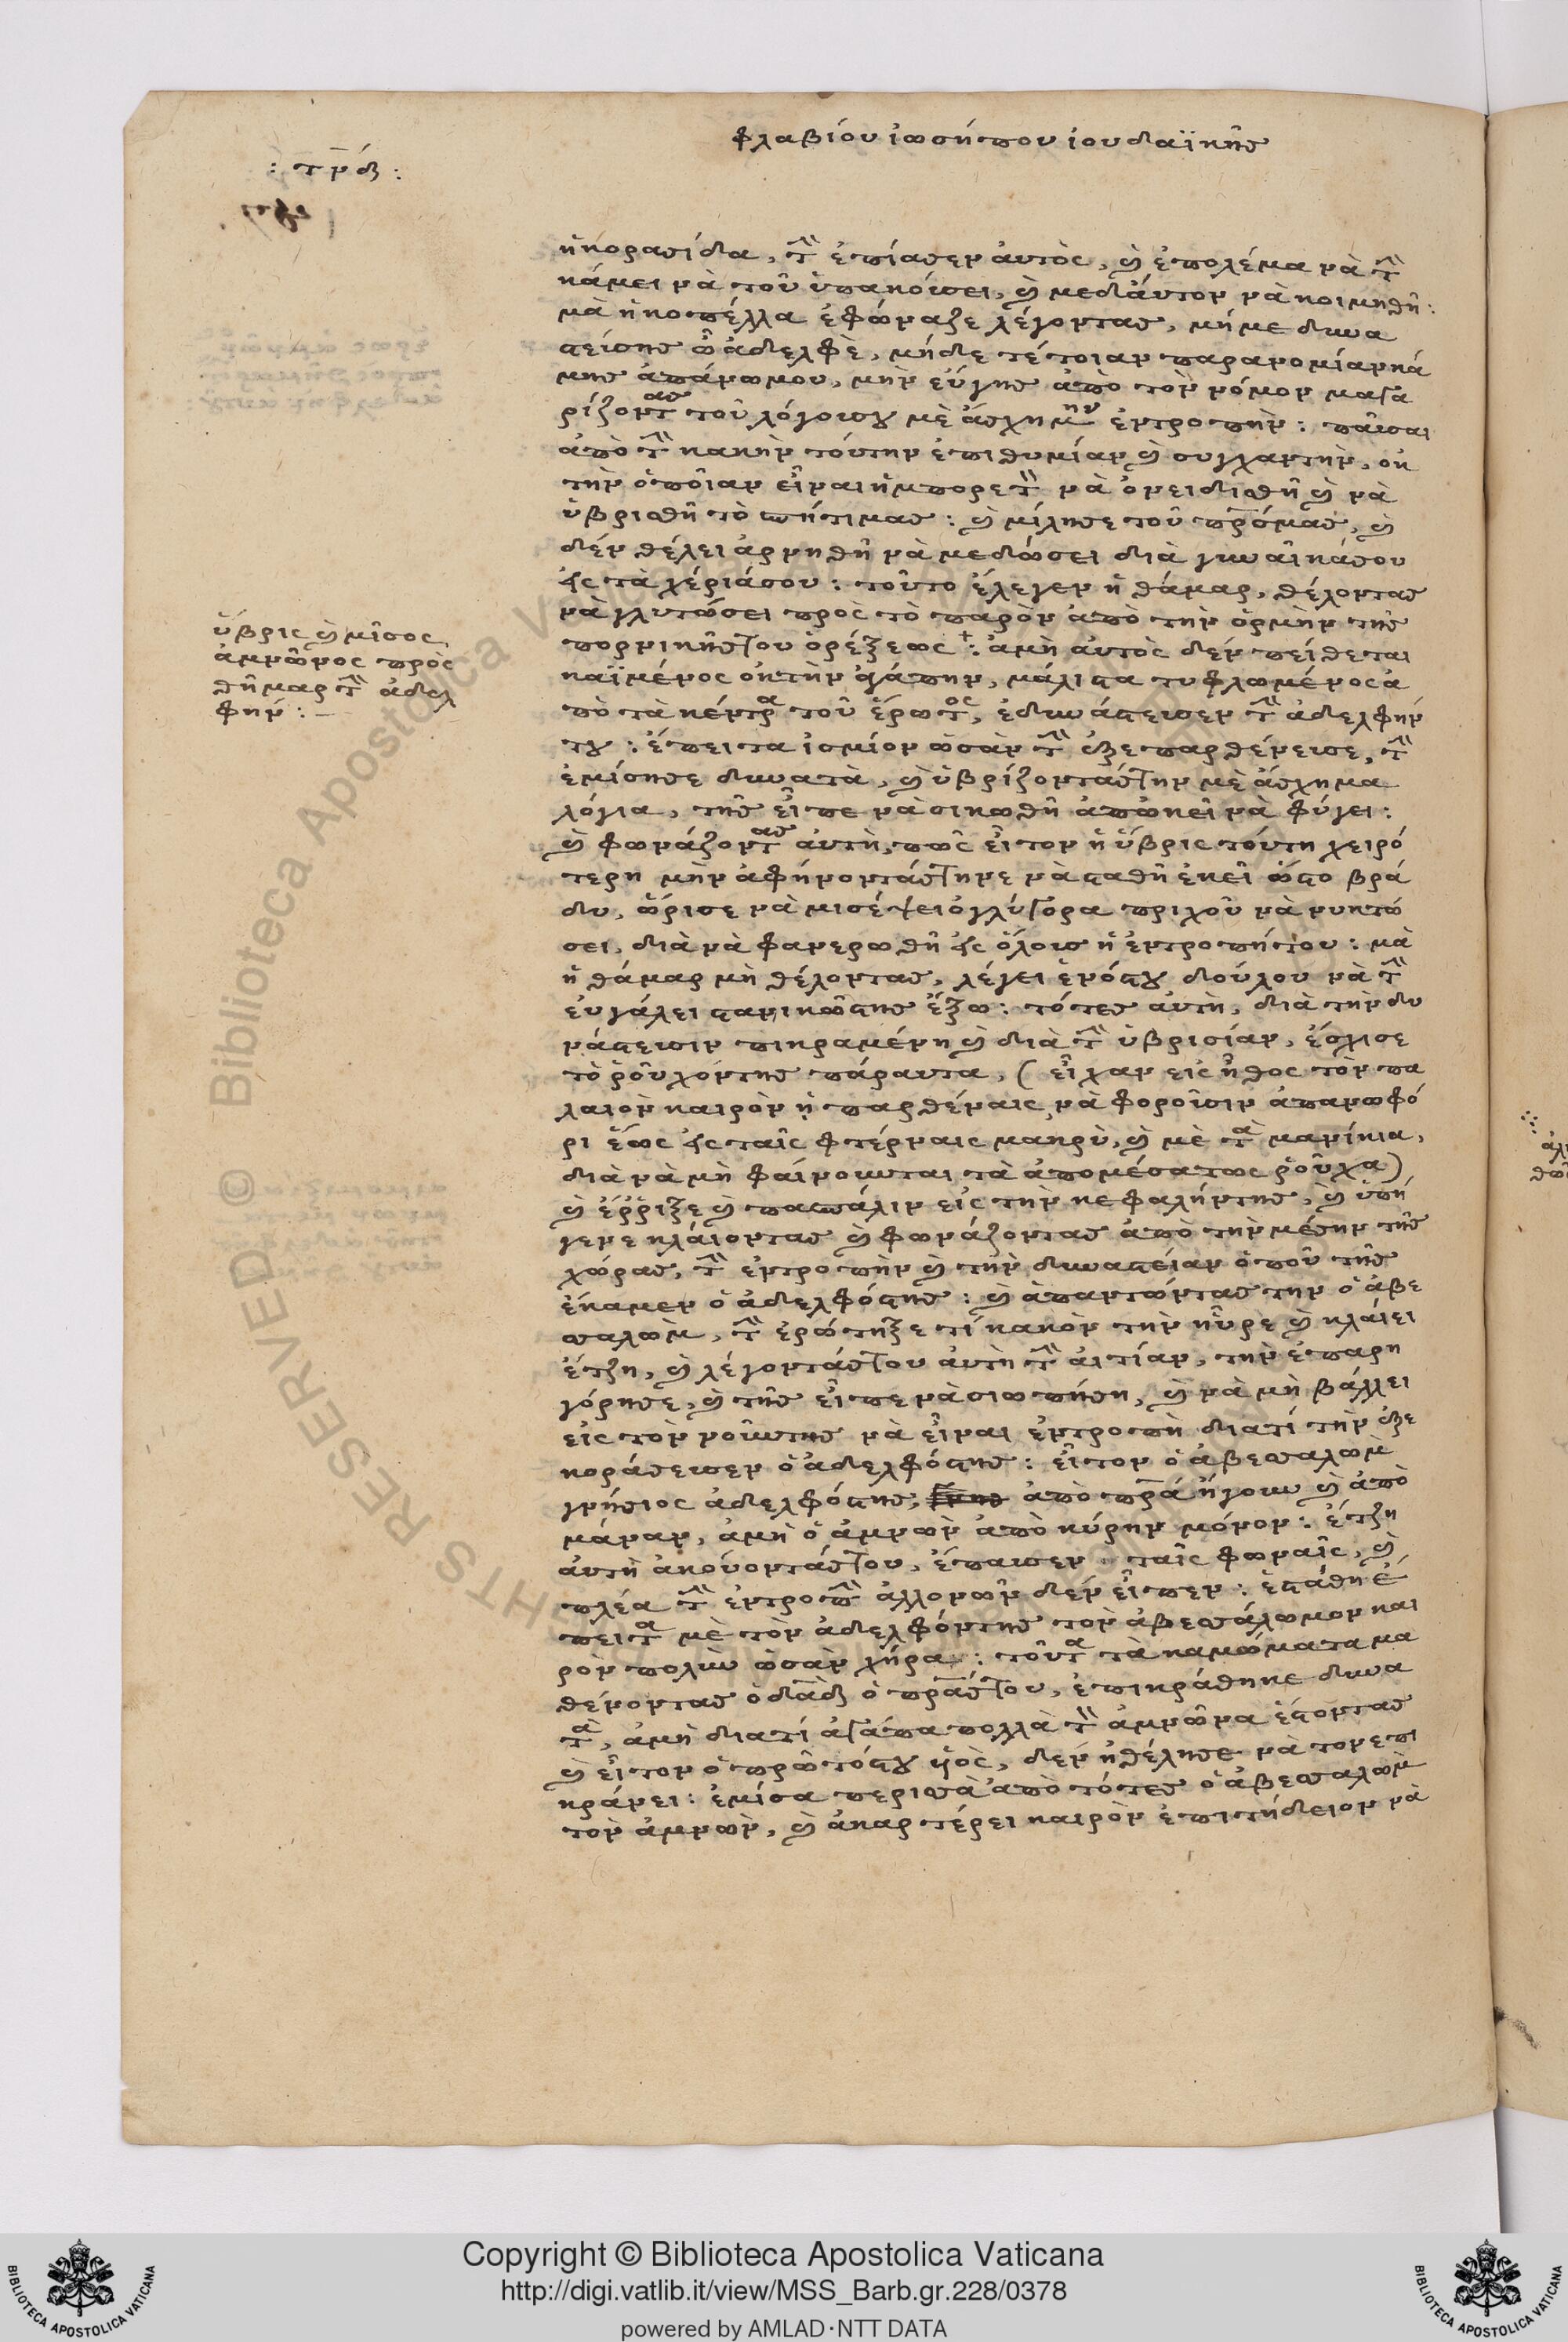 φλαβίου ἰωσήπου ἰουδαϊκῆς
: τ̅ν̅δ̅ :
ἡ κορασίδα, τὴν ἐπίασεν ἀυτὸς, καὶ ἐπολέμα νὰ τὴν
κάμει νὰ τοῦ ὑπακούσει, καὶ μεδἀυτον νὰ κοιμηθῆ:
μὰ ἡ κοπέλλα ἐφώναζε λέγοντας, μήμε δυνα
στεύσης ὦ ἀδελφὲ, μήδε τέτοιαν παρανομίαν κά
μης ἀπάνωμου, μὴν εὔγης ἀπὸ τὸν νόμον μαγα
ρίζοντας τοῦ λόγουσου μὲ ἄσχημην ἐντροπήν: παῦσαι
ἀπὸ τὴν κακὴν τούτην ἐπιθυμίαν καὶ συγχαντὴν, ἐκ
τὴν ὁποῖαν εἶναι ἠμπορετὸν νὰ ὀνειδισθῆ καὶ νὰ
ὑβρισθῆ τὸ σπήτιμας: καὶ μίλησε τοῦ πρ̅όμας, καὶ
δέν θέλει ἀρνηθῆ νὰ μεδώσει διὰ γυναῖκάσου
εἰς τὰ χέριάσου: τοῦτο ἔλεγεν ἡ θάμαρ, θέλοντας
νὰ γλυτώσει πρὸς τὸ παρὸν ἀπὸ τὴν ὁρμὴν τῆς
πορνικῆςτου ὀρέξεως: ἀμὴ ἀυτὸς δέν πείθεται
καϊμένος ἐκτὴν ἀγάπην, μάλιστα τυφλωμένος ἀ
πὸ τὰ κέντρα τοῦ ἔρωτος, ἐδυνάστευσεν τὴν ἀδελφήν
του: ἔπειτα ἰσμίον ὡσὰν τὴν ἐξεπαρθένευσε, τὴν
ἐμίσησε δυνατὰ, καὶ ὑβρίζονταςτην μὲ ἄσχημα
λόγια, τῆς εἶπε νὰ σικωθῆ ἀπὠκεῖ νὰ φύγει:
καὶ φωνάζοντας ἀυτὴ, πῶς εἶτον ἡ ὕβρις τούτη χειρό
τερη μὴν ἀφήνονταςτηνε νὰ σταθῆ ἐκεῖ ὥστο βρά
δυ, ὥρισε νὰ μισέψει ὀγλύγορα πριχοῦ νὰ νυκτώ
σει, διὰ νὰ φανερωθῆ εἰς ὅλους ἡ ἐντροπήτου: μὰ
ἡ θάμαρ μὴ θέλοντας, λέγει ἑνόςτου δούλου νὰ τὴν
ἐυγάλει στανικῶςτης ἔξω: τότες ἀυτὴ, διὰ τὴν δυ
νάστευσιν πικραμένη καὶ διὰ τὴν ὑβρισίαν, ἔσχισε
τὸ ῥοῦχόντης πάραυτα, (εἶχαν εἰς ἦθος τὸν πα
λαιὸν καιρὸν ᾑ παρθέναις νὰ φοροῦσιν ἀπανωφό
ρι ἕως εἰς ταῖς φτέρναις μακρὺ, καὶ μὲ τὰ μανίκια,
διὰ νὰ μὴ φαίνουνται τὰ ἀπομέσατως ῥοῦχα)
καὶ ἔῤῥιξε καὶ πασπάλιν εἰς τὴν κεφαλήντης, καὶ ὑπή
γενε κλάιοντας καὶ φωνάζοντας ἀπὸ τὴν μέσην τῆς
χώρας, τὴν ἐντροπὴν καὶ τὴν δυναστείαν ὁποῦ τῆς
ἔκαμεν ὁ ἀδελφόςτης: καὶ ἀπαντώντας την ὁ ἀβε
σσαλωμ, τὴν ἐρώτηξε τί κακὸν τὴν ηὗρε καὶ κλάιει
ἔτζη, καὶ λέγονταςτου ἀυτὴ τὴν ἀιτίαν, τὴν ἐπαρη
γόρησε, καὶ τῆς εἶπε νὰ σιωπήση, καὶ νὰ μὴ βάλλει
εἰς τὸν νοῦντης νὰ εἶναι ἐντροπὴ διατί τὴν ἐξε
κοράσευσεν ὁ ἀδελφόςτης: εἶτον ὁ ἀβεσσαλωμ
γνήσιος ἀδελφόςτης, ἀπὸ πρ̅ά ἤγουν καὶ ἀπὸ
μάναν, ἀμὴ ὁ ἀμνὼν ἀπὸ κύρην μόνον: ἔτζη
ἀυτὴ ἀκούονταςτου, ἔπαυσεν ταῖς φωναῖς, καὶ
πλέα τὴν ἐντροπὴν ἀλλονῶν δὲν εἶπεν: ἐστάθη ἔ
πειτα μὲ τὸν ἀδελφόντης τὸν ἀβεσσάλωμον και
ρὸν πολὺν ὡσὰν χήρα: τοῦτα τὰ καμώματα μα
θένοντας ὁ δα̅δ̅ ὁ πρ̅άςτου, ἐπικράθηκε δυνα
τὰ, ἀμὴ διατί ἀγάπα πολλὰ τὸν ἀμνῶνα ἔστοντας
καὶ εἶτον ὁ πρωτόςτου ὑιὸς, δὲν ἠθέλησε νὰ τονεπι
κράνει: ἐμίσα περισσὰ ἀπὸ τότες ὁ ἀβεσσαλωμ
τὸν ἀμνών, καὶ ἀκαρτέρει καιρὸν ἐπιτήδειον νὰ
ὕβρις καὶ μῖσος
ἀμνῶνος πρὸς
θῆμαρ τὴν ἀδελ
φήν:—
Copyright © Biblioteca Apostolica Vaticana
http://digi.vatlib.it/view/MSS_Barb.gr.228/0378
powered by AMLAD·NTT DATA